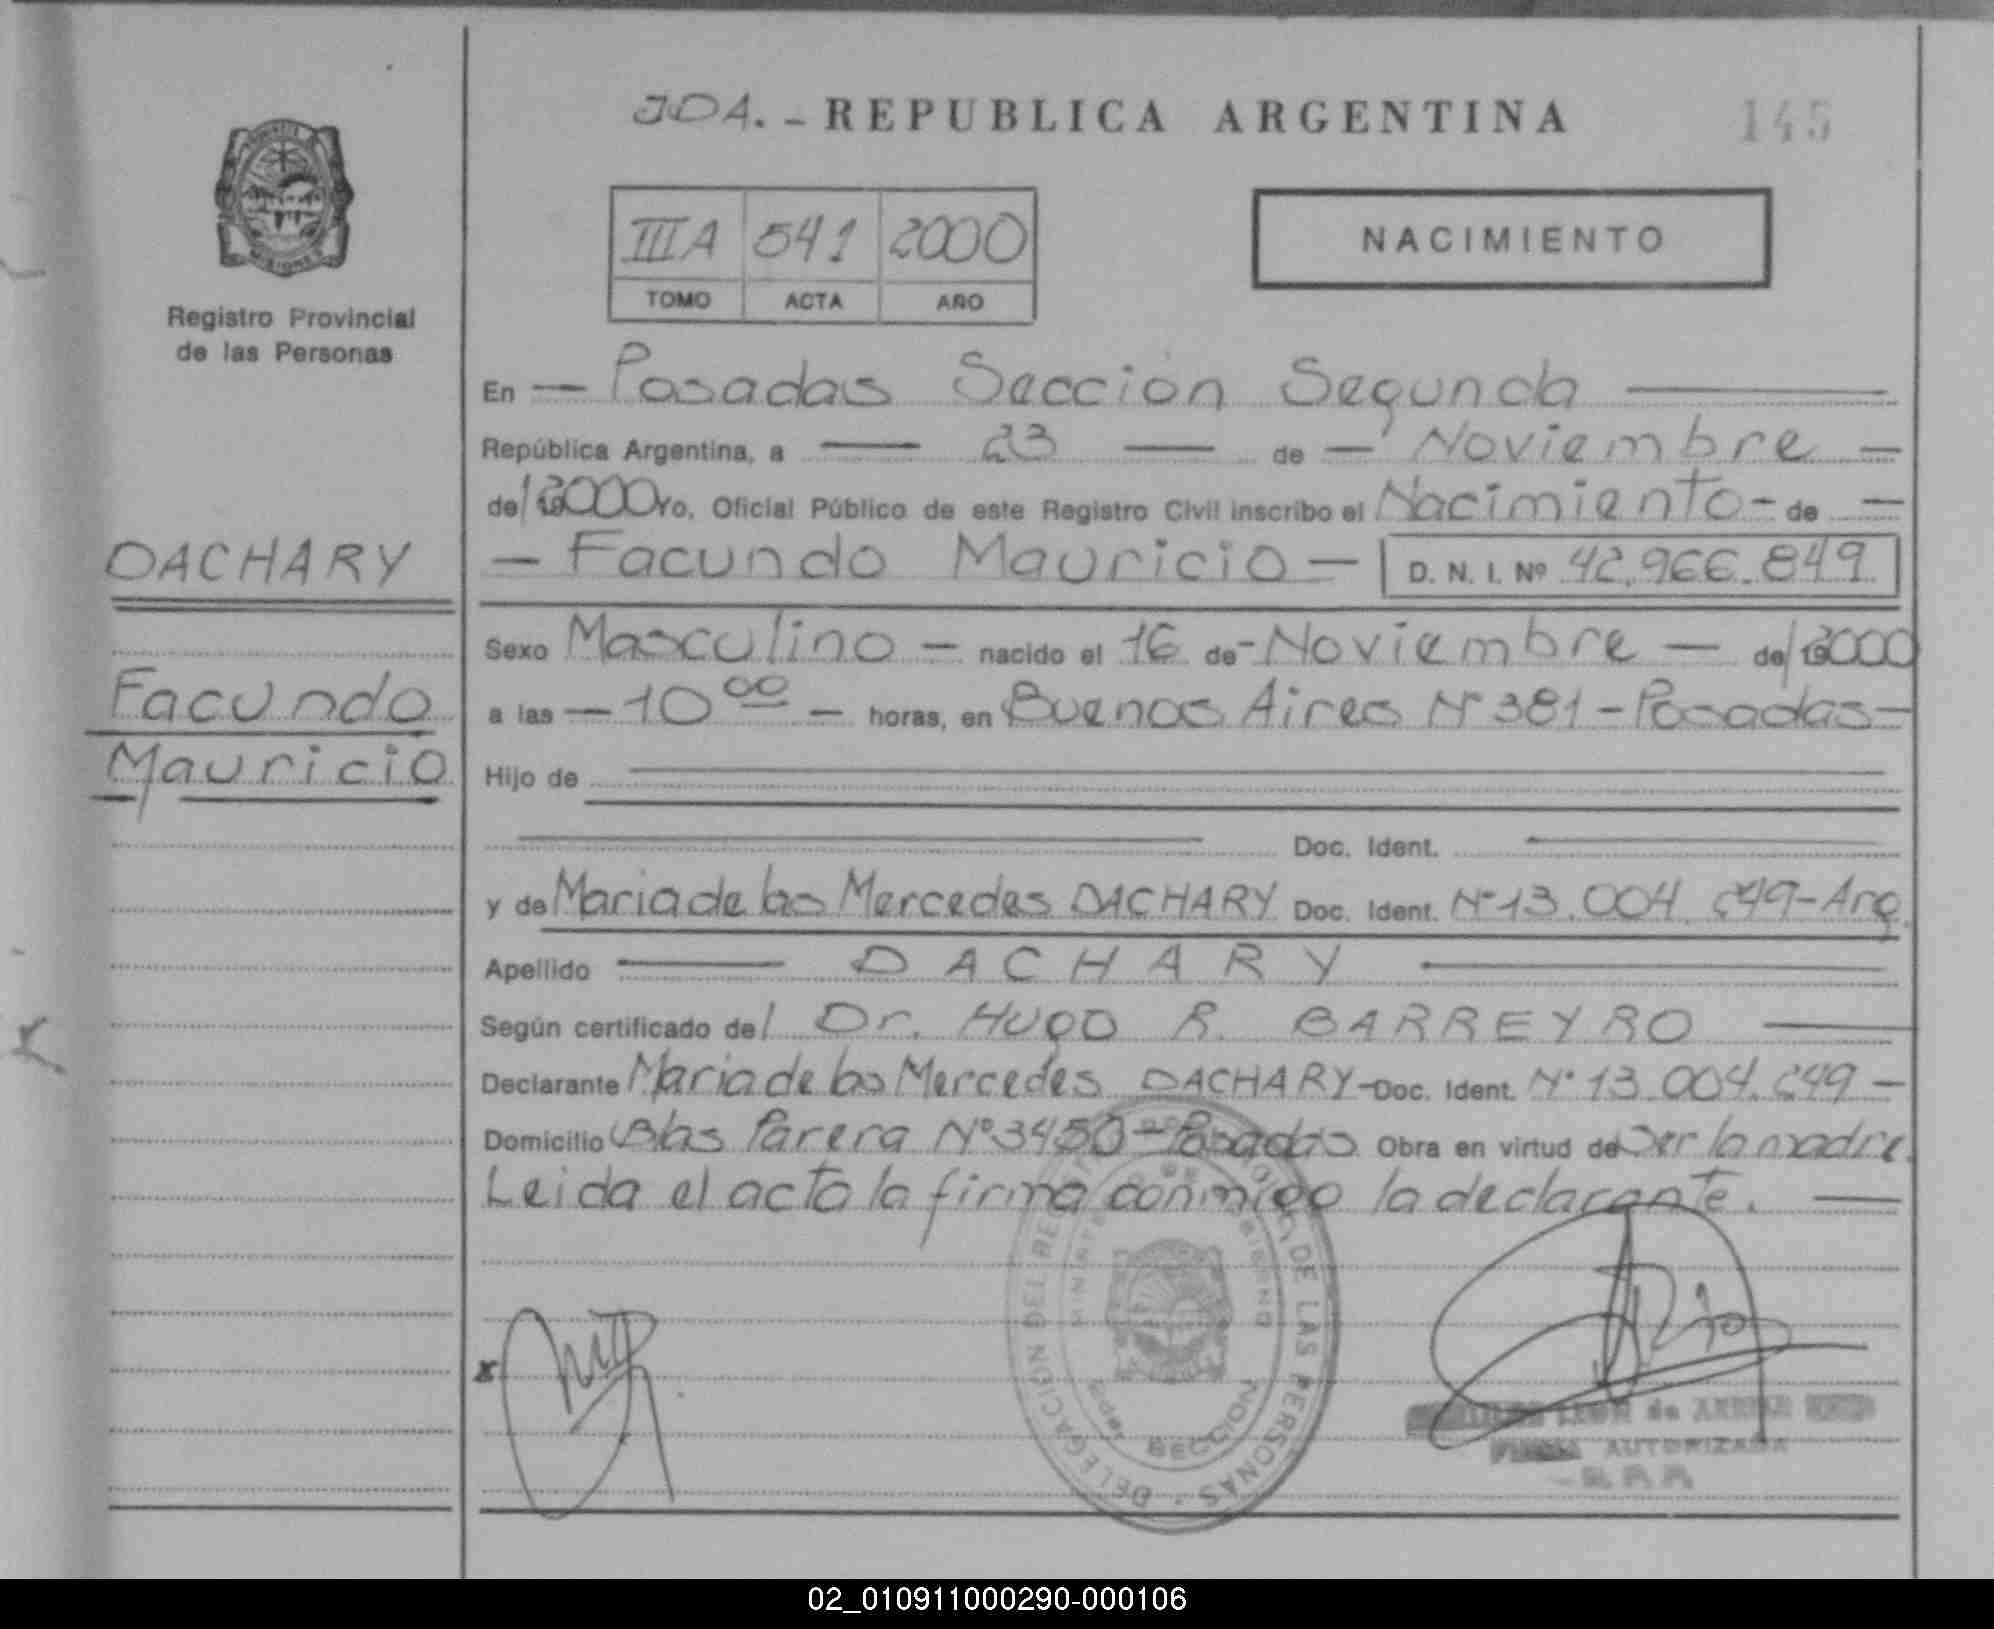 JDA. - REPUBLICA ARGENTINA
145
MISIONES
Registro Provincial
de las Personas
IIIA 541 2000
TOMO ACTA AÑO
NACIMIENTO
En — Posadas Sección Segunda —
República Argentina, a — 23 — de — Noviembre —
de/ 2000 Yo, Oficial Público de este Registro Civil inscribo el Nacimiento - de —
— Facundo Mauricio — D. N. I. Nº 42.966.849
DACHARY
Facundo
Mauricio
Sexo Masculino — nacido el 16 de - Noviembre — de/ 2000
a las — 10 00 — horas, en Buenos Aires Nº 381 - Posadas -
Hijo de
Doc. Ident.
y de Maria de las Mercedes DACHARY Doc. Ident. Nº 13.004.249 - Arg.
Apellido — DACHARY —
Según certificado del Dr. Hugo R. BARREYRO —
Declarante Maria de las Mercedes DACHARY - Doc. Ident. Nº 13.004.249 -
Domicilio Blas Parera Nº 3450 - Posadas Obra en virtud de Ser la madre.
Leida el acta la firma conmigo la declarante. —
DELEGACIÓN DEL DE LAS PERSONAS
SECCION
LEON de
FIRMA AUTORIZADA
02_010911000290-000106